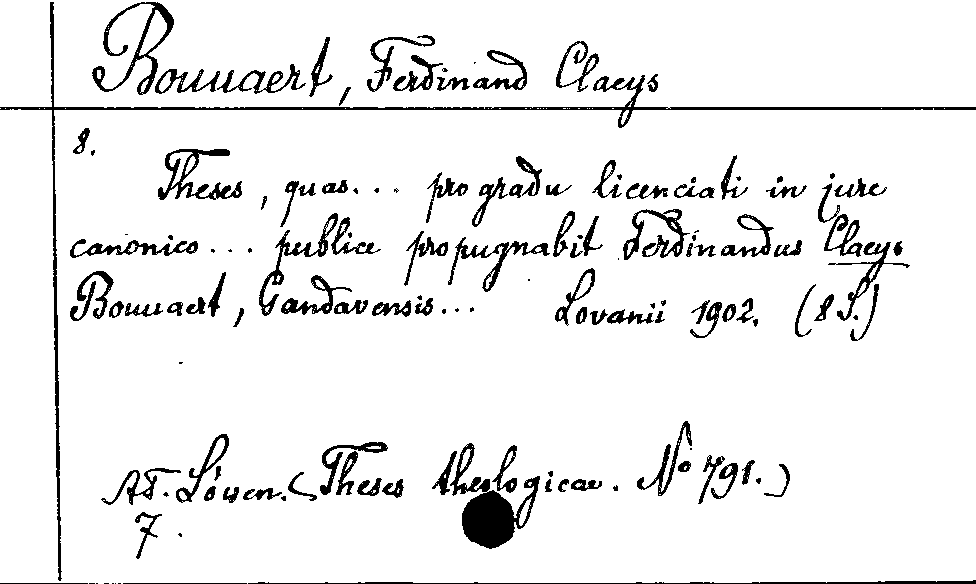 Bouuaert, Ferdinand Claeys
8.
Theses, quas... pro gradu licenciati in jure
canonico... publice propugnabit Ferdinandus Claeys
Bouuaert, Gandavensis... Lovanii 1902. (8 S.)
At. Löwen. (Theses theologicae. No 791.)
7.